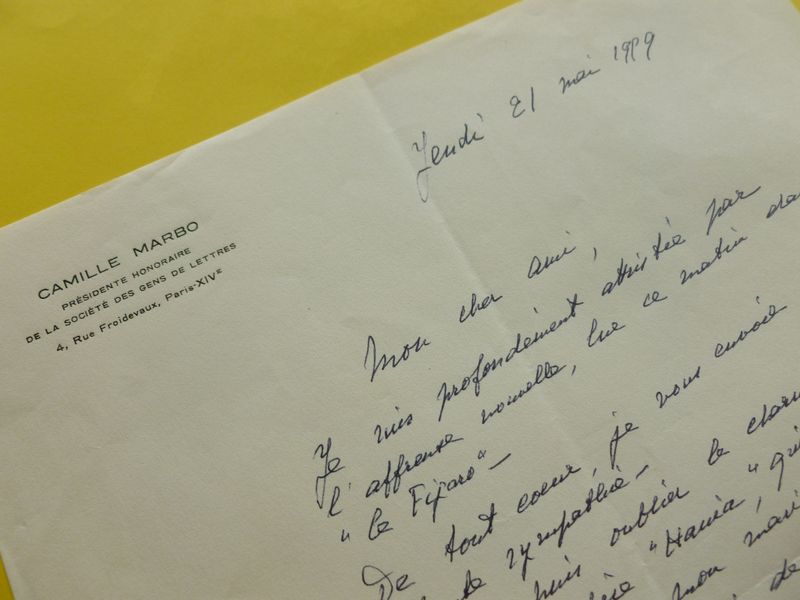 CAMILLE MARBO
PRÉSIDENTE HONORAIRE
DE LA SOCIÉTÉ DES GENS DE LETTRES
4, Rue Froidevaux, Paris-XIVᵉ
Jeudi 21 mai 1959
Mon cher ami,
Je suis profondément attristée par
l'affreuse nouvelle, lue ce matin
"le Figaro" -
De tout coeur, je vous envoie
sympathie -
puis oublier le
"Hania", qui
mon mari
de